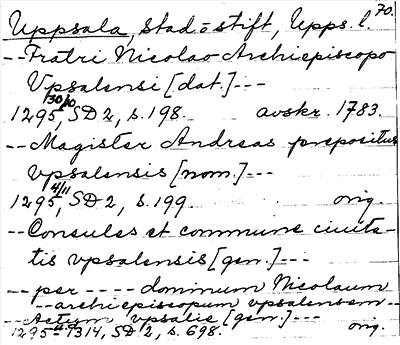 Uppsala, Stad o stift, Upps. l. 70.
-- Fratri Nicolao Archiepiscopo
Vpsalensi [dat.] ---
1295 30/10, SD 2, s. 198. avskr. 1783.
-- Magister Andreas prepositus
vpsalensis [nom.] ---
1295 4/11, SD 2, s. 199. orig.
-- Consules et commune ciuita-
tis vpsalensis [gen.] ---
-- per ---- dominum Nicolaum
-- archiepiscopum vpsalensem --
-- Actum vpsalie [gen.] ---
1295 1314, SD 2, s. 698. orig.